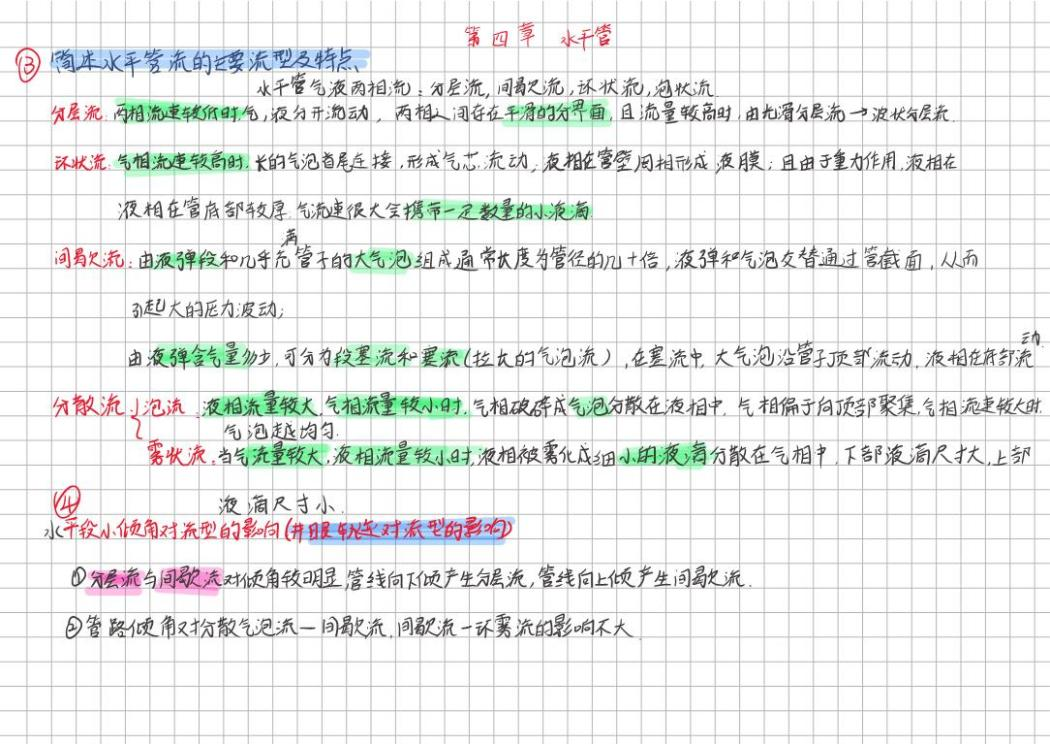 第四章 水平管
③ 简述水平管流的主要流型及特点
水平管气液两相流：分层流，间歇流，环状流，泡状流
分层流：两相流速较低时气，液分开流动，两相之间存在平滑的分界面，且流量较高时，由光滑分层流→波状分层流．
环状流：气相流速较高时，长的气泡首尾连接，形成气芯流动，液相在管壁周相形成液膜；且由于重力作用，液相在
液相在管底部较厚．气流速很大会携带一定数量的小液滴
间歇流：由液弹段和几乎充满管子的大气泡组成通常长度为管径的几十倍，液弹和气泡交替通过管截面，从而
引起大的压力波动；
由液弹含气量多少，可分为段塞流和塞流(拉长的气泡流)，在塞流中，大气泡沿管子顶部流动，液相在底部流动．
分散流{泡流：液相流量较大，气相流量较小时，气相破碎成气泡分散在液相中，气相偏于向顶部聚集，气相流速较大时．
气泡越均匀．
雾状流：当气流量较大，液相流量较小时，液相被雾化成细小的液滴分散在气相中，下部液滴尺寸大，上部
液滴尺寸小．
④
水平段小倾角对流型的影响(井眼轨迹对流型的影响)
①分层流与间歇流对倾角较明显，管线向下倾产生分层流，管线向上倾产生间歇流．
②管路倾角对分散气泡流—间歇流，间歇流—环雾流的影响不大．